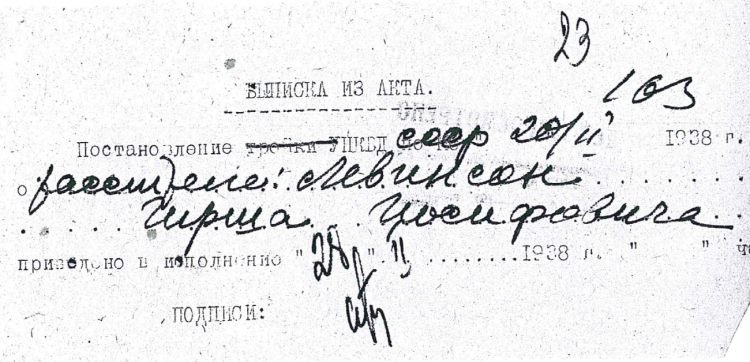 23
103
ВЫПИСКА ИЗ АКТА.
Постановление тройки УНКВД СССР 20/II 1938 г.
о расстреле: Левинсон
Гирша Иосифовича
приведено в исполнение "28" II 1938 г. " " ча
ПОДПИСИ: